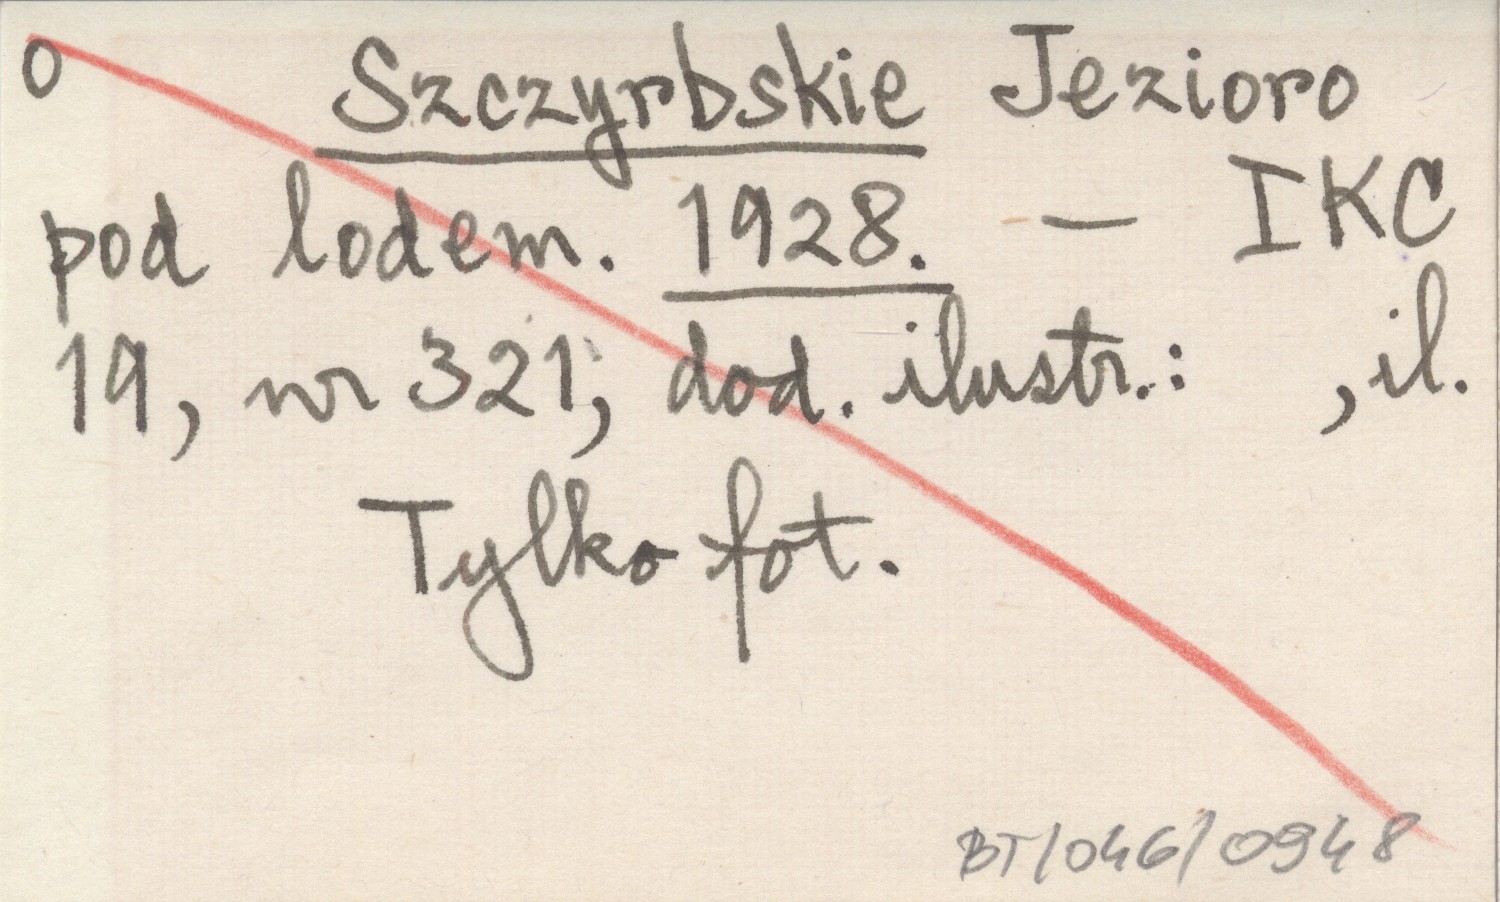 o Szczyrbskie Jezioro
pod lodem. 1928. — IKC
19, nr 321; dod. ilustr.: , il.
Tylko fot.
BT/046/0948